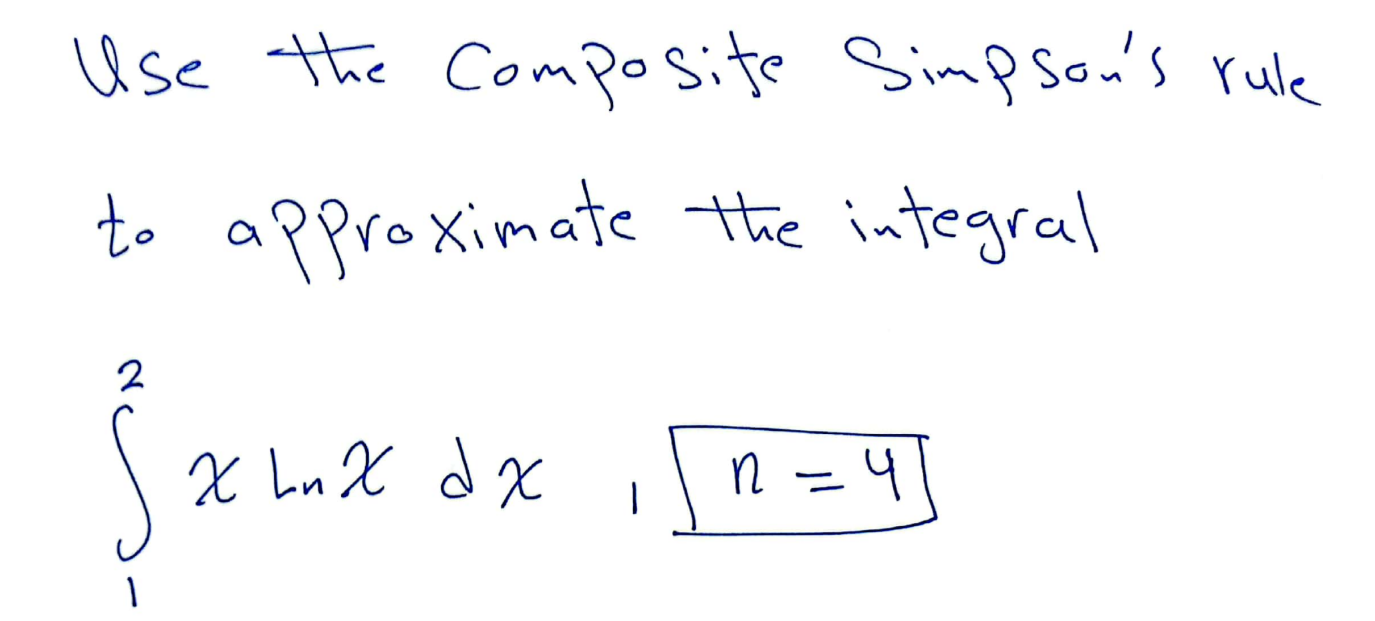 Use the Composite Simpson's rule
to approximate the integral
∫₁² x Ln x dx , n = 4